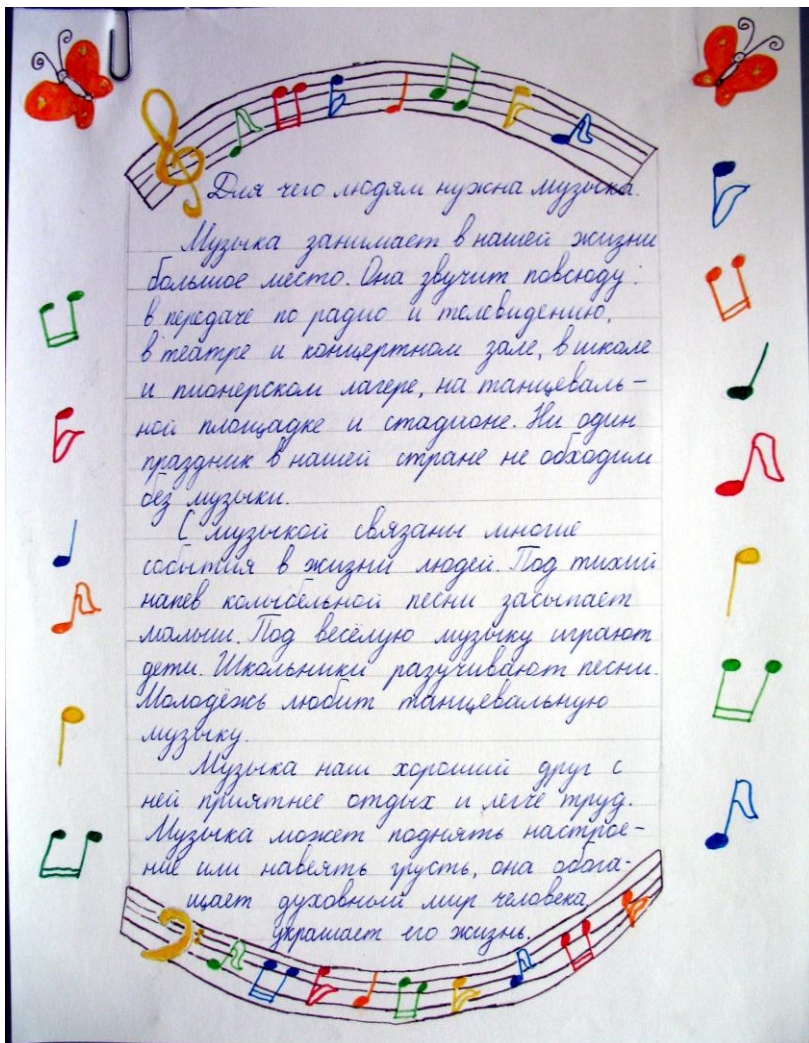 Для чего людям нужна музыка.
Музыка занимает в нашей жизни
большое место. Она звучит повсюду:
в передаче по радио и телевидению,
в театре и концертном зале, в школе
и пионерском лагере, на танцеваль-
ной площадке и стадионе. Ни один
праздник в нашей стране не обходим
без музыки.
С музыкой связаны многие
события в жизни людей. Под тихий
напев колыбельной песни засыпает
малыш. Под весёлую музыку играют
дети. Школьники разучивают песни.
Молодёжь любит танцевальную
музыку.
Музыка наш хороший друг с
ней приятнее отдых и легче труд.
Музыка может поднять настрое-
ние или навеять грусть, она обога-
щает духовный мир человека
украшает его жизнь.